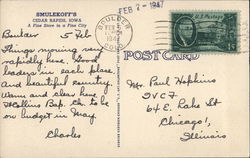 FEB 7 - 1947
SMULEKOFF'S
CEDAR RAPIDS, IOWA
A Fine Store in a Fine City
BOULDER
FEB 5
194
COLO.
U.S. Postage
Boulder 5 Feb
Things moving very
rapidly here. Good
leaders in each place
and beautiful country,
warm and clear here
Mollins Bap. Ch. to be
on budget in May.
Charles
Mr. Paul Hopkins
IVCF
64 E. Lake St
Chicago 1,
Illinois